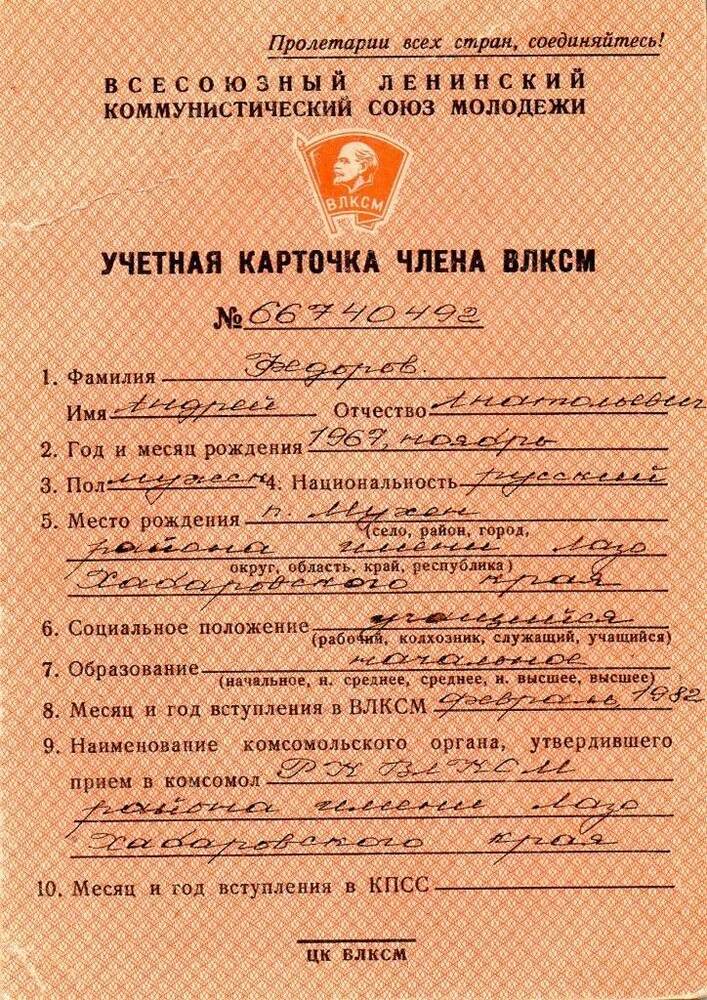 Пролетарии всех стран, соединяйтесь!
ВСЕСОЮЗНЫЙ ЛЕНИНСКИЙ
КОММУНИСТИЧЕСКИЙ СОЮЗ МОЛОДЕЖИ
ВЛКСМ
УЧЕТНАЯ КАРТОЧКА ЧЛЕНА ВЛКСМ
№ 66740492
1. Фамилия Федоров.
Имя Андрей Отчество Анатольевич
2. Год и месяц рождения 1967, ноябрь
3. Пол мужск 4. Национальность русский
5. Место рождения п. Мухен
(село, район, город,
района имени Лазо
округ, область, край, республика)
Хабаровского края
6. Социальное положение учащийся
(рабочий, колхозник, служащий, учащийся)
7. Образование начальное
(начальное, н. среднее, среднее, н. высшее, высшее)
8. Месяц и год вступления в ВЛКСМ февраль, 1982
9. Наименование комсомольского органа, утвердившего
прием в комсомол РК ВЛКСМ
района имени Лазо
Хабаровского края
10. Месяц и год вступления в КПСС
ЦК ВЛКСМ